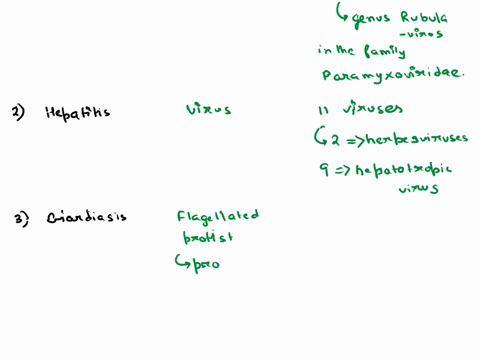 ↳ genus Rubula
-virus
in the family
Paramyxoviridae.
2) Hepatitis virus 11 viruses
↳ 2 => herpesviruses
9 => hepatotropic
virus
3) Giardiasis Flagellated
protist
↳ pro